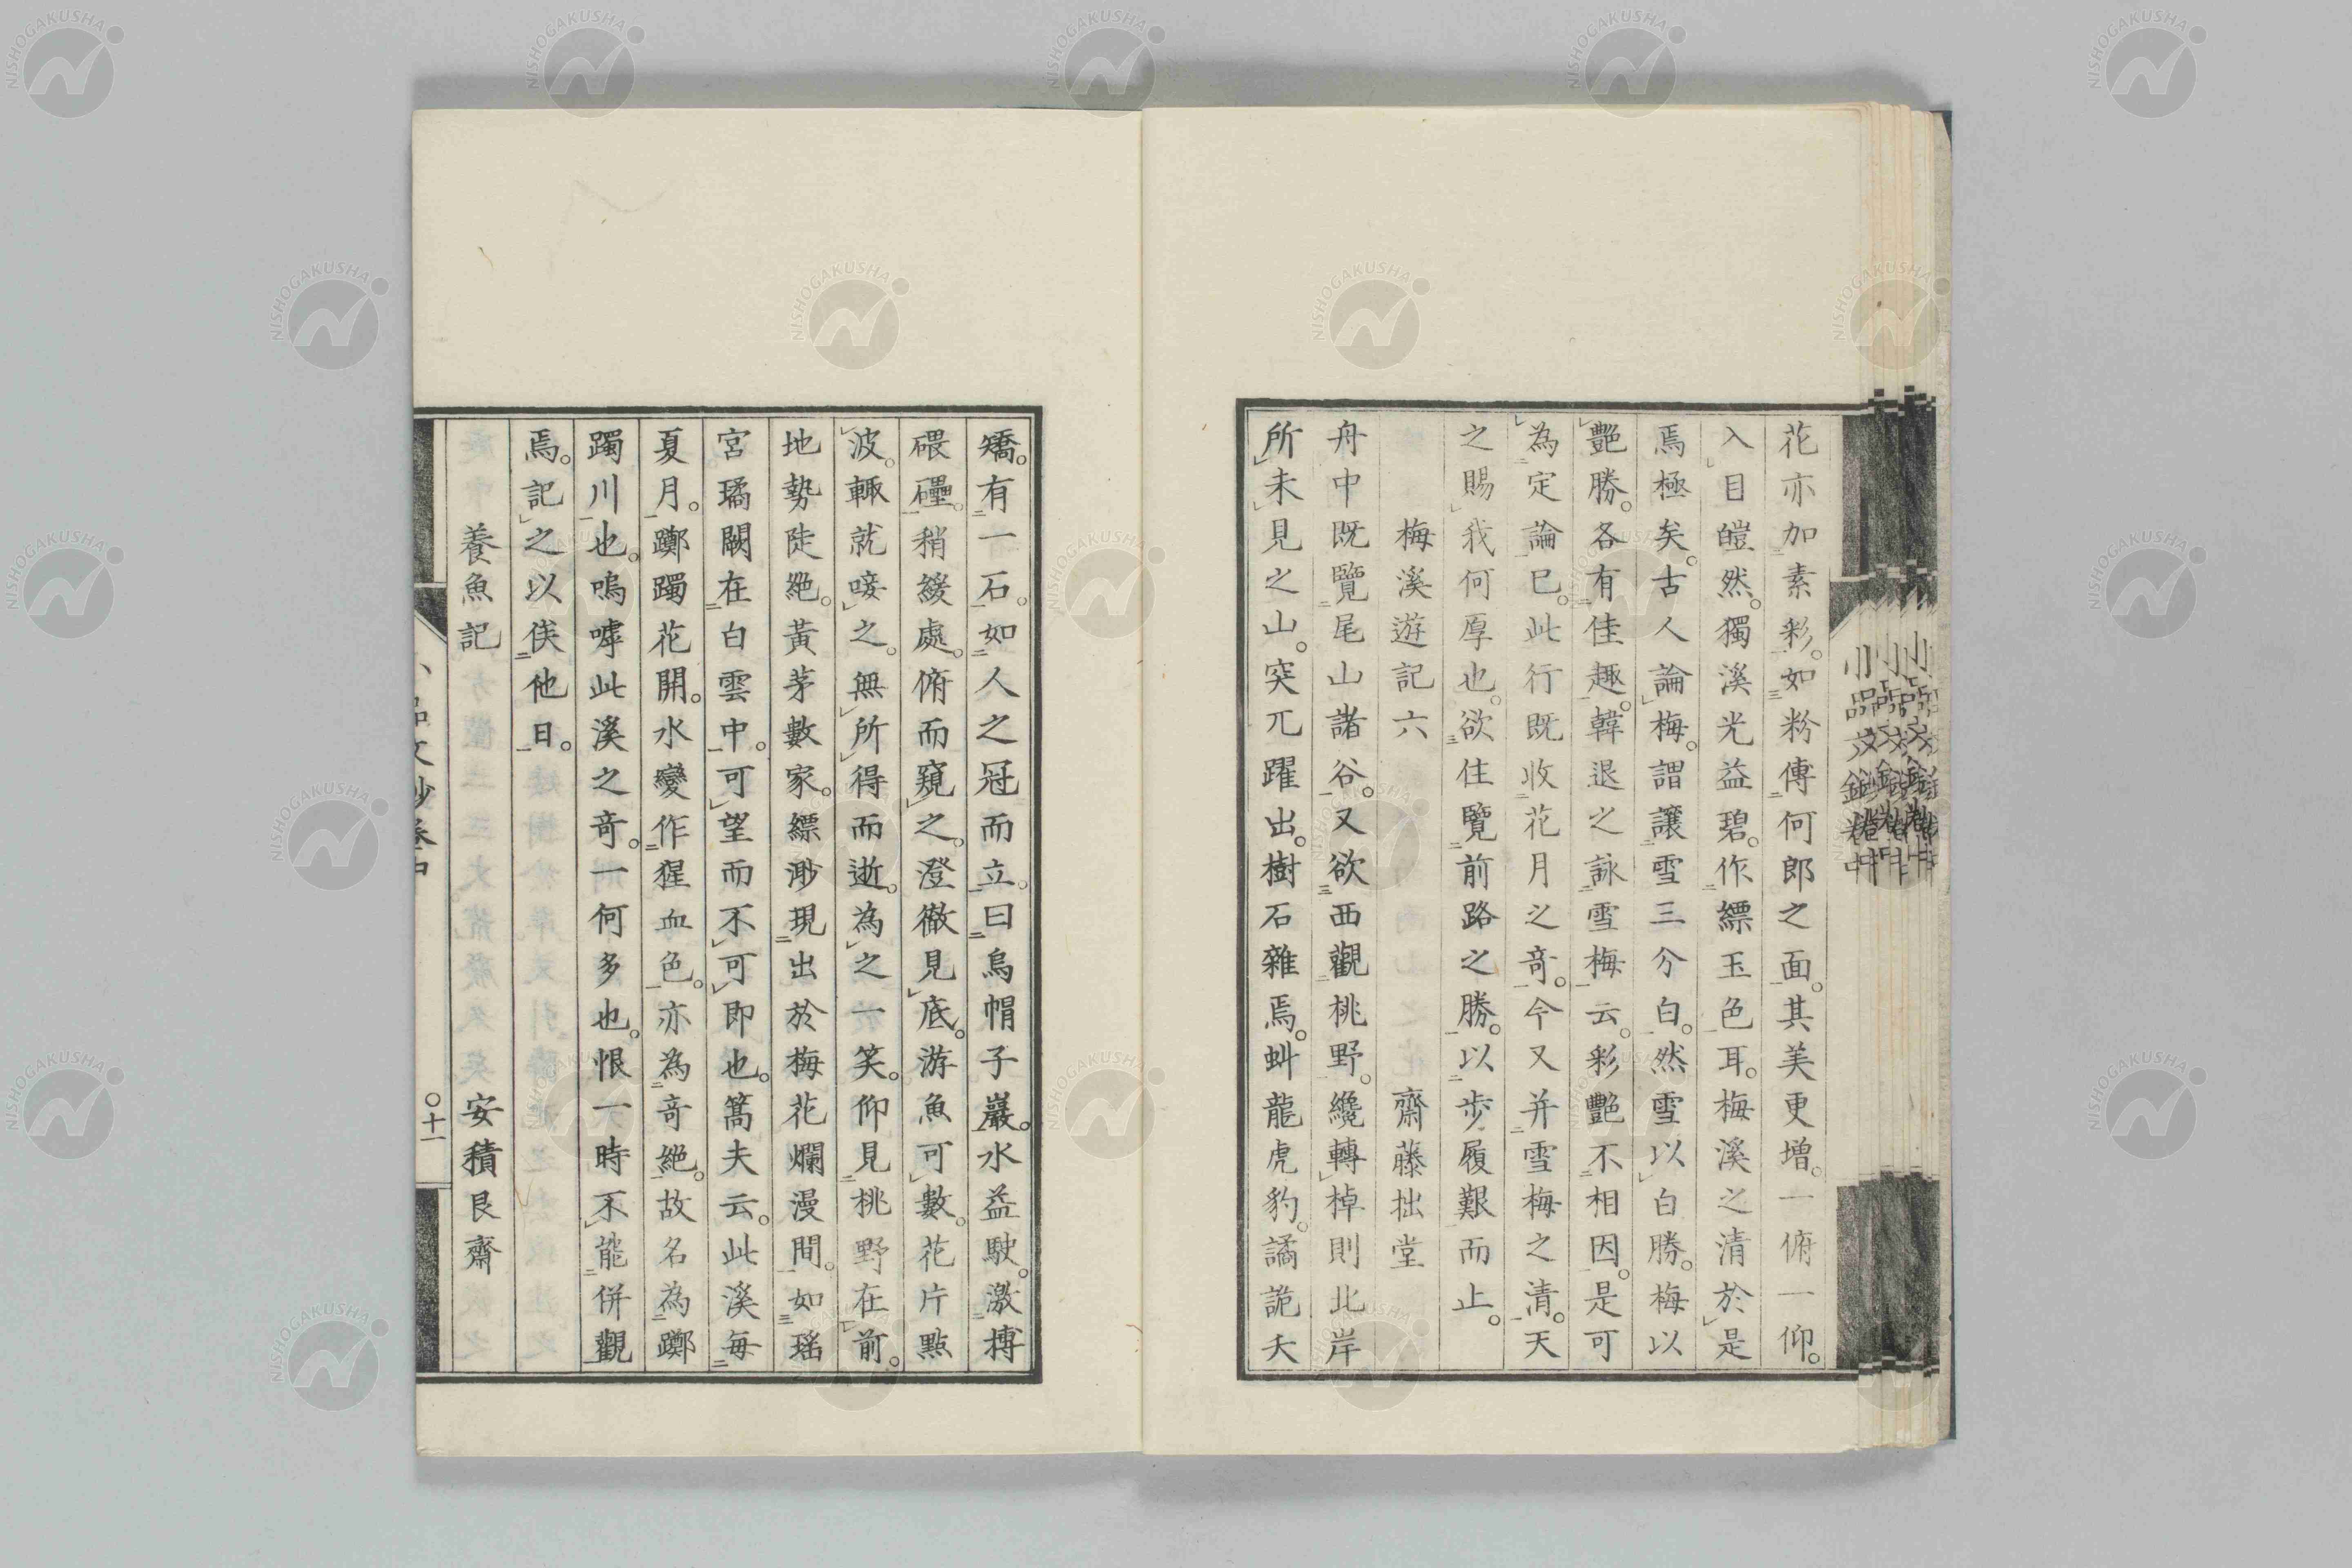 花亦加素彩。如粉傅何郎之面。其美更增。一俯一仰。
入目皚然。獨溪光益碧。作縹玉色耳。梅溪之清於是
焉極矣。古人論梅。謂讓雪三分白。然雪以白勝。梅以
艷勝。各有佳趣。韓退之詠雪梅云。彩艷不相因。是可
為定論已。此行既收花月之奇。今又并雪梅之清。天
之賜我何厚也。欲住覽前路之勝。以步履艱而止。
梅溪遊記六 齋藤拙堂
舟中既覽尾山諸谷。又欲西觀桃野。纔轉棹則北岸
所未見之山。突兀躍出。樹石雜焉。虯龍虎豹。譎詭夭
矯。有一石。如人之冠而立。曰烏帽子巖。水益駛。激搏
碨礧。稍緩處。俯而窺之。澄徹見底。游魚可數。花片點
波。輙就唼之。無所得而逝。為之一笑。仰見桃野在前。
地勢陡絶。黃茅數家。縹渺現出於梅花爛漫間。如瑤
宮璚闕在白雲中。可望而不可即也。篙夫云。此溪每
夏月。躑躅花開。水變作猩血色。亦為奇絶。故名為躑
躅川也。嗚呼此溪之奇。一何多也。恨一時不能併觀
焉。記之以俟他日。
養魚記 安積艮齋
小品文鈔卷中
〇十一
NISHOGAKUSHA